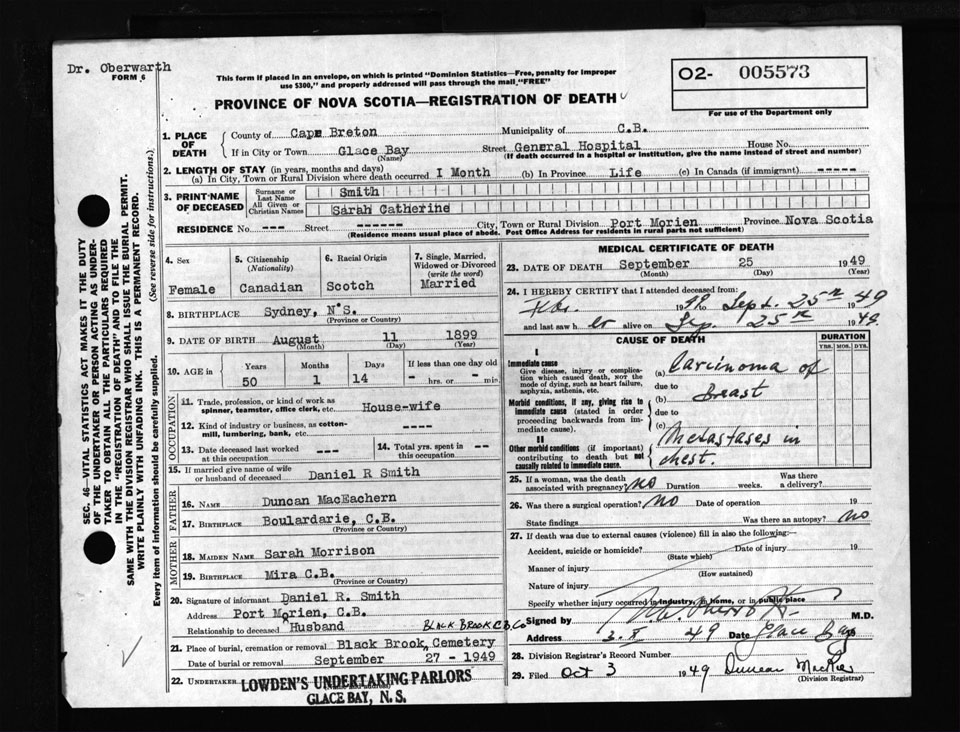 Dr. Oberwarth
FORM 6
This form if placed in an envelope, on which is printed "Dominion Statistics—Free, penalty for improper
use $300," and properly addressed will pass through the mail "FREE"
O2- 005573
For use of the Department only
PROVINCE OF NOVA SCOTIA—REGISTRATION OF DEATH
SEC. 46—VITAL STATISTICS ACT MAKES IT THE DUTY
OF THE UNDERTAKER OR PERSON ACTING AS UNDER-
TAKER TO OBTAIN ALL THE PARTICULARS REQUIRED
IN THE "REGISTRATION OF DEATH" AND TO FILE THE
SAME WITH THE DIVISION REGISTRAR WHO SHALL ISSUE THE BURIAL PERMIT.
WRITE PLAINLY WITH UNFADING INK. THIS IS A PERMANENT RECORD.
Every item of information should be carefully supplied. (See reverse side for instructions.)
1. PLACE OF DEATH
County of Cape Breton Municipality of C.B.
If in City or Town Glace Bay Street General Hospital House No.
(Name) (If death occurred in a hospital or institution, give the name instead of street and number)
2. LENGTH OF STAY (in years, months and days)
(a) In City, Town or Rural Division where death occurred I Month (b) In Province Life (c) In Canada (if immigrant) -----
3. PRINT NAME OF DECEASED
Surname or Last Name Smith
All Given or Christian Names Sarah Catherine
RESIDENCE No. --- Street ------ City, Town or Rural Division Port Morien Province Nova Scotia
(Residence means usual place of abode. Post Office Address for residents in rural parts not sufficient)
4. Sex
Female
5. Citizenship
(Nationality)
Canadian
6. Racial Origin
Scotch
7. Single, Married,
Widowed or Divorced
(write the word)
Married
8. BIRTHPLACE Sydney, N.S.
(Province or Country)
9. DATE OF BIRTH August 11 1899
(Month) (Day) (Year)
10. AGE in Years Months Days If less than one day old
50 1 14 - hrs. or - min.
OCCUPATION
11. Trade, profession, or kind of work as
spinner, teamster, office clerk, etc. House-wife
12. Kind of industry or business, as cotton-
mill, lumbering, bank, etc. ----
13. Date deceased last worked
at this occupation ---
14. Total yrs. spent in
this occupation --
15. If married give name of wife
or husband of deceased Daniel R Smith
FATHER
16. NAME Duncan MacEachern
17. BIRTHPLACE Boulardarie, C.B.
(Province or Country)
MOTHER
18. MAIDEN NAME Sarah Morrison
19. BIRTHPLACE Mira C.B.
(Province or Country)
20. Signature of informant Daniel R. Smith
Address Port Morien, C.B.
Relationship to deceased Husband
BLACK BROOK C.B. Co
21. Place of burial, cremation or removal Black Brook Cemetery
Date of burial or removal September 27 - 1949
22. UNDERTAKER
(Name and address)
LOWDEN'S UNDERTAKING PARLORS
GLACE BAY, N. S.
MEDICAL CERTIFICATE OF DEATH
23. DATE OF DEATH September 25 1949
(Month) (Day) (Year)
24. I HEREBY CERTIFY that I attended deceased from:
Feb. 1949 Sept. 25th 1949
and last saw her alive on Sep. 25th 1949.
CAUSE OF DEATH
DURATION
YRS. MOS. DYS.
I
Immediate cause
Give disease, injury or complica-
tion which caused death, not the
mode of dying, such as heart failure,
asphyxia, asthenia, etc.
(a) Carcinoma of
due to
(b) Breast
Morbid conditions, if any, giving rise to
immediate cause (stated in order
proceeding backwards from im-
mediate cause).
due to
(c)
II
Other morbid conditions (if important)
contributing to death but not
causally related to immediate cause.
Metastases in
chest.
25. If a woman, was the death
associated with pregnancy? No Duration weeks. Was there
a delivery?
26. Was there a surgical operation? No Date of operation 19
State findings Was there an autopsy? No
27. If death was due to external causes (violence) fill in also the following:—
Accident, suicide or homicide? Date of injury 19
(State which)
Manner of injury
(How sustained)
Nature of injury
Specify whether injury occurred in industry, in home, or in public place
Signed by M.D.
Address 3. X 49 Date Glace Bay
28. Division Registrar's Record Number
29. Filed Oct 3 1949 Duncan MacRae
(Division Registrar)